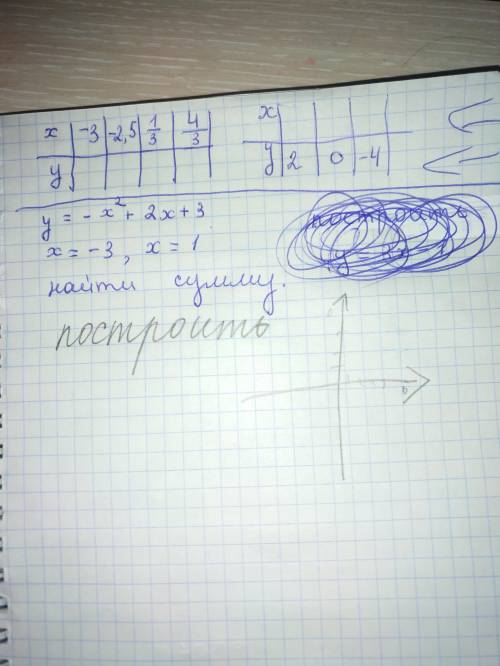 x | -3 | -2,5 | 1/3 | 4/3
y
x
y | 2 | | 0 | -4
y = -x² + 2x + 3
x = -3, x = 1
найти сумму.
построить